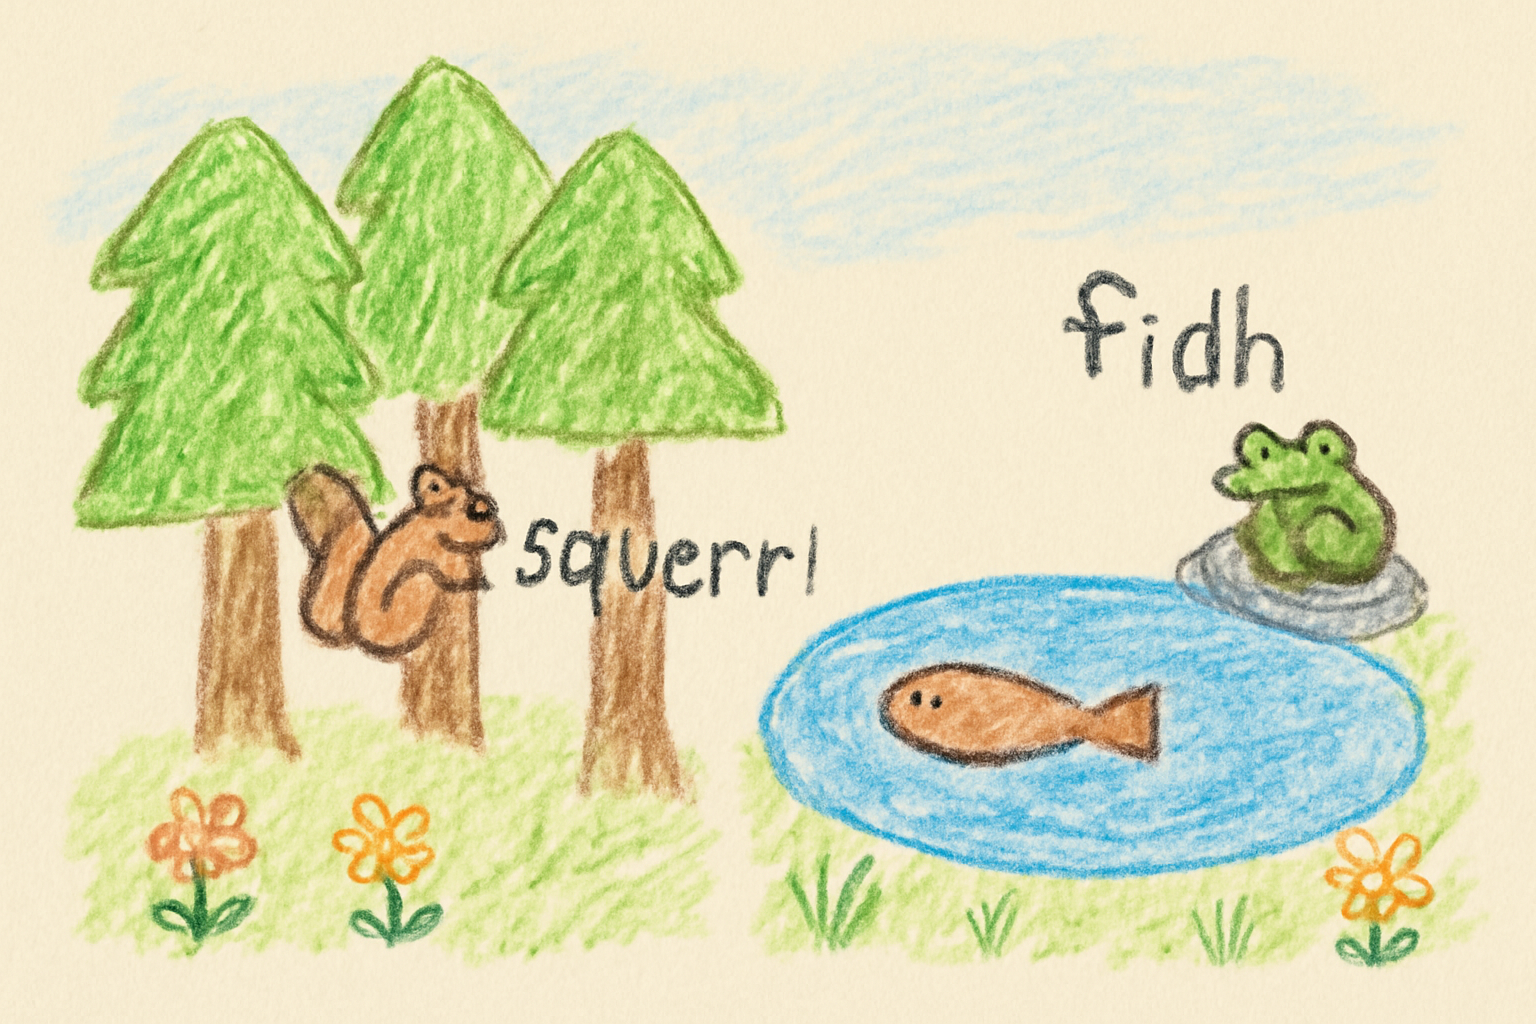 fidh
squerrl